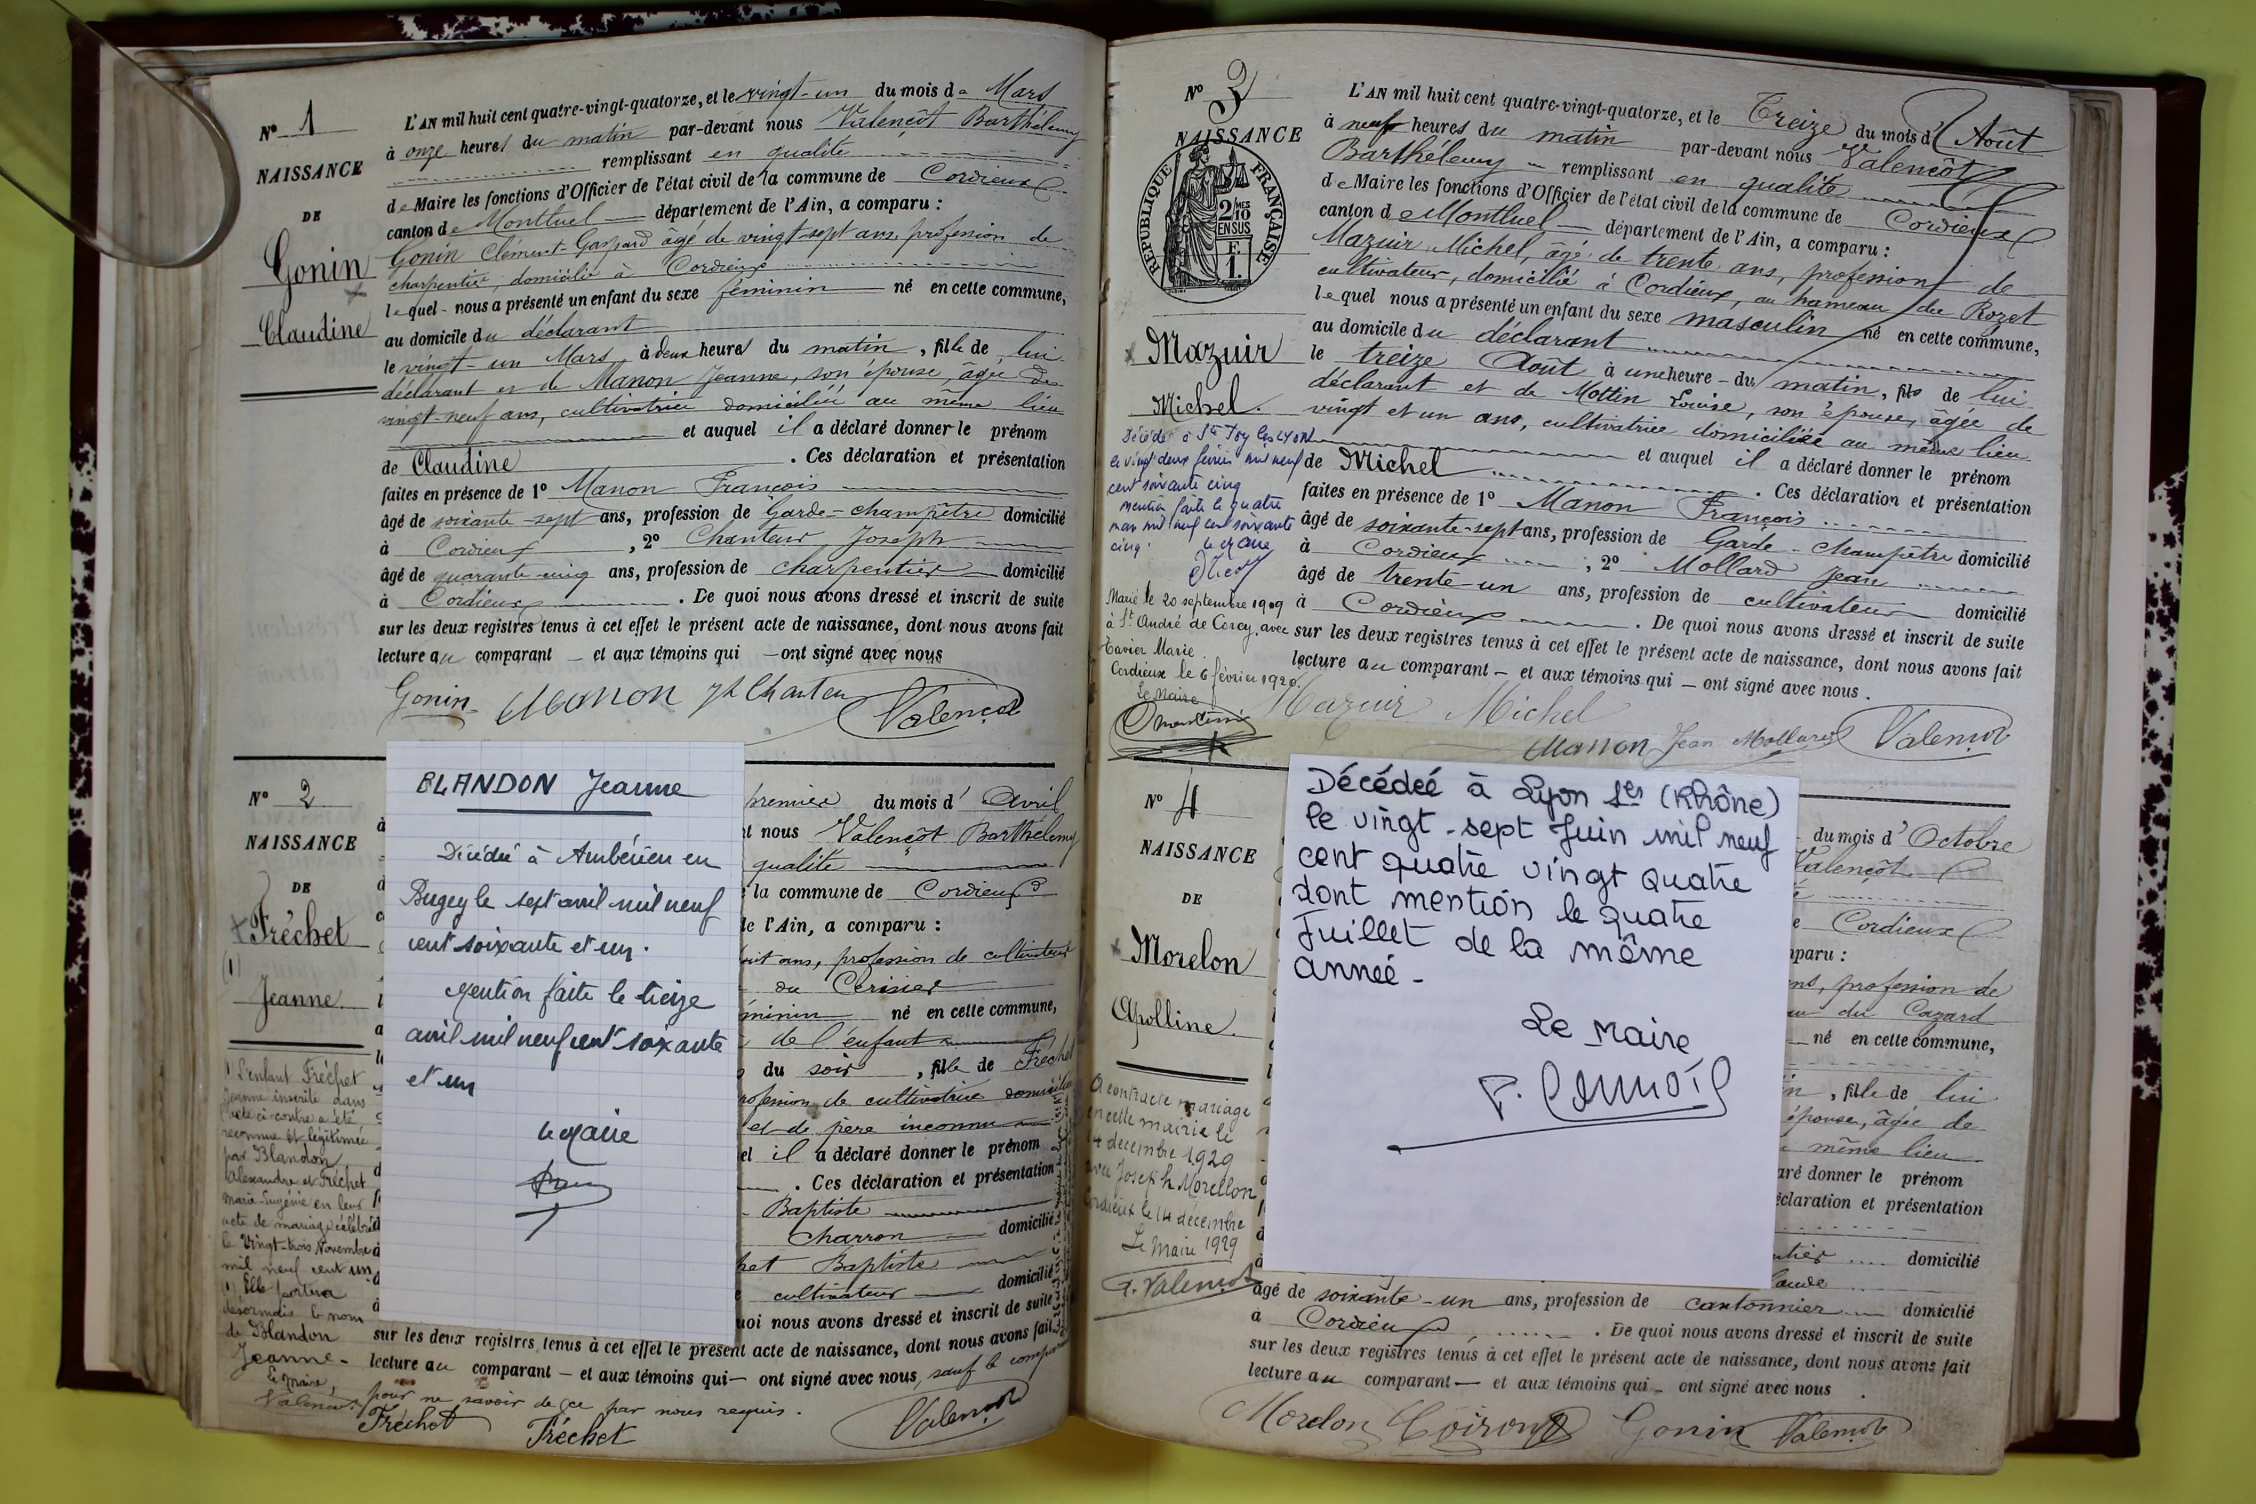 N° 1
NAISSANCE
DE
Gonin
Claudine
L'AN mil huit cent quatre-vingt-quatorze, et le vingt-un du mois de Mars
à onze heures du matin par-devant nous Valençôt Barthélemy
remplissant en qualité
de Maire les fonctions d'Officier de l'état civil de la commune de Cordieux
canton de Montluel département de l'Ain, a comparu :
Gonin Clément-Gaspard âgé de vingt-sept ans, profession de
charpentier, domicilié à Cordieux
lequel nous a présenté un enfant du sexe féminin né en cette commune,
au domicile du déclarant
le vingt-un Mars à deux heures du matin, fille de lui
déclarant et de Manon Jeanne, son épouse, âgée de
vingt-neuf ans, cultivatrice domiciliée au même lieu
et auquel il a déclaré donner le prénom
de Claudine . Ces déclaration et présentation
faites en présence de 1° Manon François
âgé de soixante-sept ans, profession de Garde-champêtre domicilié
à Cordieux , 2° Chanteur Joseph
âgé de quarante-cinq ans, profession de charpentier domicilié
à Cordieux . De quoi nous avons dressé et inscrit de suite
sur les deux registres tenus à cet effet le présent acte de naissance, dont nous avons fait
lecture au comparant et aux témoins qui ont signé avec nous
Gonin Manon Jh Chanteur Valençot
N° 2
NAISSANCE
DE
Fréchet
(1)
Jeanne
(1) L'enfant Fréchet
Jeanne inscrite dans
l'acte ci-contre a été
reconnue et légitimée
par Blandon
Alexandre et Fréchet
Marie-Eugénie en leur
acte de mariage célébré
le Vingt-trois Novembre
mil neuf cent un
(1) Elle portera
désormais le nom
de Blandon
Jeanne-
Le Maire,
Valençot
BLANDON Jeanne
Décédée à Ambérieu en
Bugey le sept avril mil neuf
cent soixante et un.
Mention faite le treize
avril mil neuf cent soixante
et un
Le Maire
premier du mois d'Avril
nt nous Valençôt Barthélemy
qualité
la commune de Cordieux
de l'Ain, a comparu :
uit ans, profession de cultivateur
du Cerisier
minin né en cette commune,
de l'enfant
du soir , fille de Fréchet
rofession de cultivatrice domiciliée
et de père inconnu
el il a déclaré donner le prénom
. Ces déclaration et présentation
Baptiste
charron domicilié
het Baptiste
cultivateur domicilié
uoi nous avons dressé et inscrit de suite
sur les deux registres tenus à cet effet le présent acte de naissance, dont nous avons fait
lecture au comparant et aux témoins qui ont signé avec nous, sauf le comparant
pour ne savoir de ce par nous requis.
Fréchet Fréchet Valençot
N° 3
NAISSANCE
RÉPUBLIQUE FRANÇAISE
2/10 MES
EN SUS
F.
1.
Mazuir
Michel.
Décédé à Ste Foy les Lyon
le vingt deux février mil neuf
cent soixante cinq
mention faite le quatre
mars mil neuf cent soixante
cinq.
Le Maire
Marié le 20 septembre 1919
à St André de Corcy, avec
Tavier Marie
Cordieux le 6 février 1920.
Le Maire
L'AN mil huit cent quatre-vingt-quatorze, et le Treize du mois d'Août
à neuf heures du matin par-devant nous Valençôt
Barthélemy remplissant en qualité
de Maire les fonctions d'Officier de l'état civil de la commune de Cordieux
canton de Montluel département de l'Ain, a comparu :
Mazuir Michel, âgé de trente ans, profession de
cultivateur, domicilié à Cordieux, au hameau du Rozet
lequel nous a présenté un enfant du sexe masculin né en cette commune,
au domicile du déclarant
le treize Août à une heure du matin, fils de lui
déclarant et de Mottin Louise, son épouse, âgée de
vingt et un ans, cultivatrice domiciliée au même lieu
et auquel il a déclaré donner le prénom
de Michel . Ces déclaration et présentation
faites en présence de 1° Manon François
âgé de soixante-sept ans, profession de Garde-champêtre domicilié
à Cordieux ; 2° Mollard Jean
âgé de trente-un ans, profession de cultivateur domicilié
à Cordieux . De quoi nous avons dressé et inscrit de suite
sur les deux registres tenus à cet effet le présent acte de naissance, dont nous avons fait
lecture au comparant et aux témoins qui ont signé avec nous.
Mazuir Michel
Manon Jean Mollard Valençot
N° 4
NAISSANCE
DE
Morelon
Apolline.
A contracté mariage
en cette mairie le
14 décembre 1929
avec Joseph Morellon
Cordieux le 14 décembre
Le Maire 1929
Valençot
Décédée à Lyon 1er (Rhône)
le vingt-sept Juin mil neuf
cent quatre vingt quatre
dont mention le quatre
Juillet de la même
année -
Le Maire
du mois d'Octobre
Valençôt
Cordieux
mparu :
ans, profession de
au du Cazard
né en cette commune,
in , fille de lui
épouse, âgée de
même lieu
aré donner le prénom
éclaration et présentation
domicilié
âgé de soixante-un ans, profession de cantonnier domicilié
à Cordieux . De quoi nous avons dressé et inscrit de suite
sur les deux registres tenus à cet effet le présent acte de naissance, dont nous avons fait
lecture au comparant et aux témoins qui ont signé avec nous
Morelon Coiron Gonin Valençot